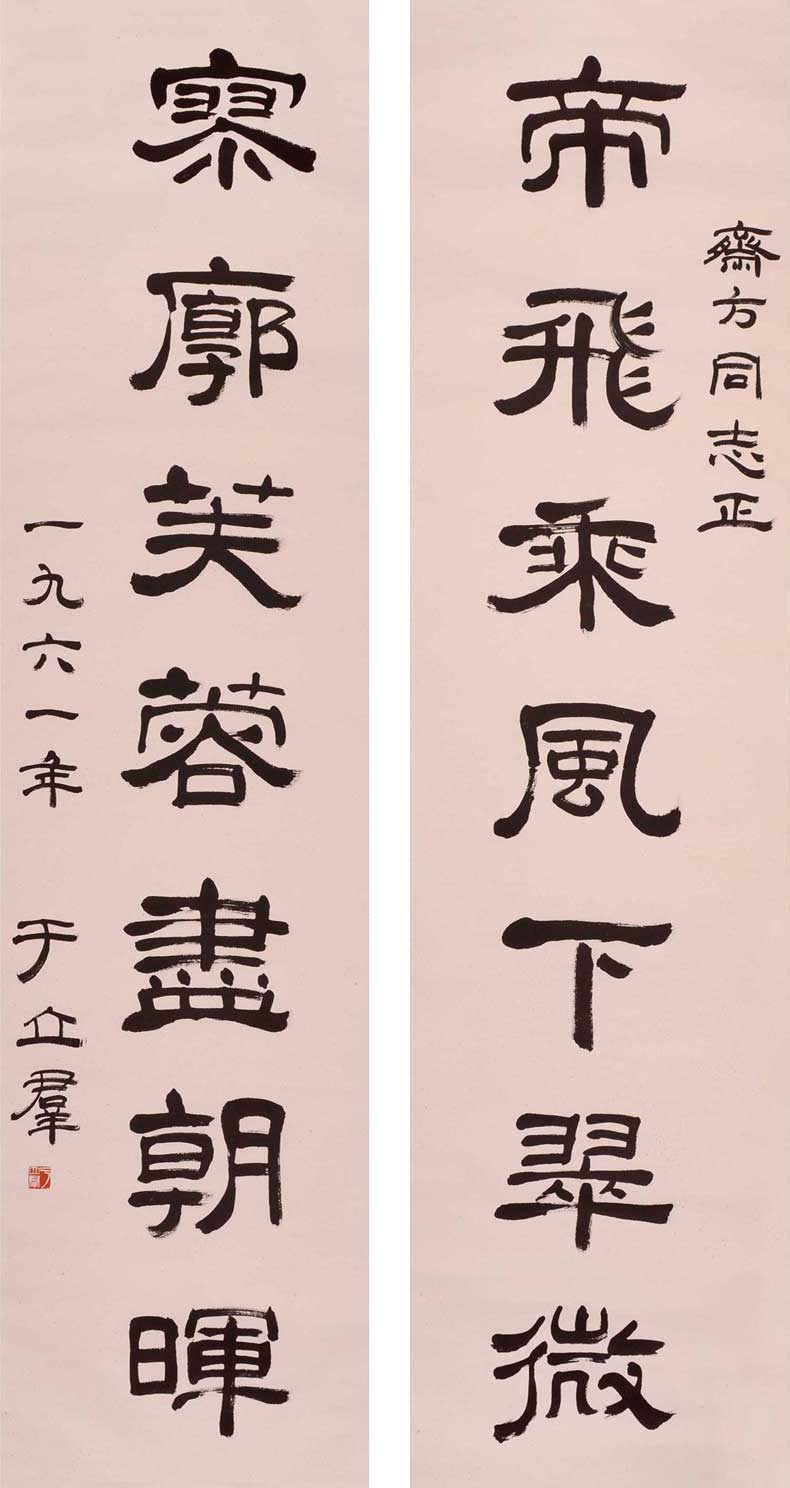 齋方同志正
帝飛乘風下翠微
寥廓芙蓉盡朝暉
一九六一年 于立羣